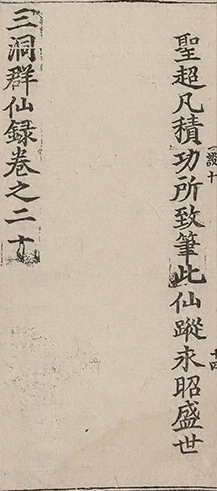 聖超凡積功所致筆此仙蹤永昭盛世
設十
十四
三洞群仙録卷之二十